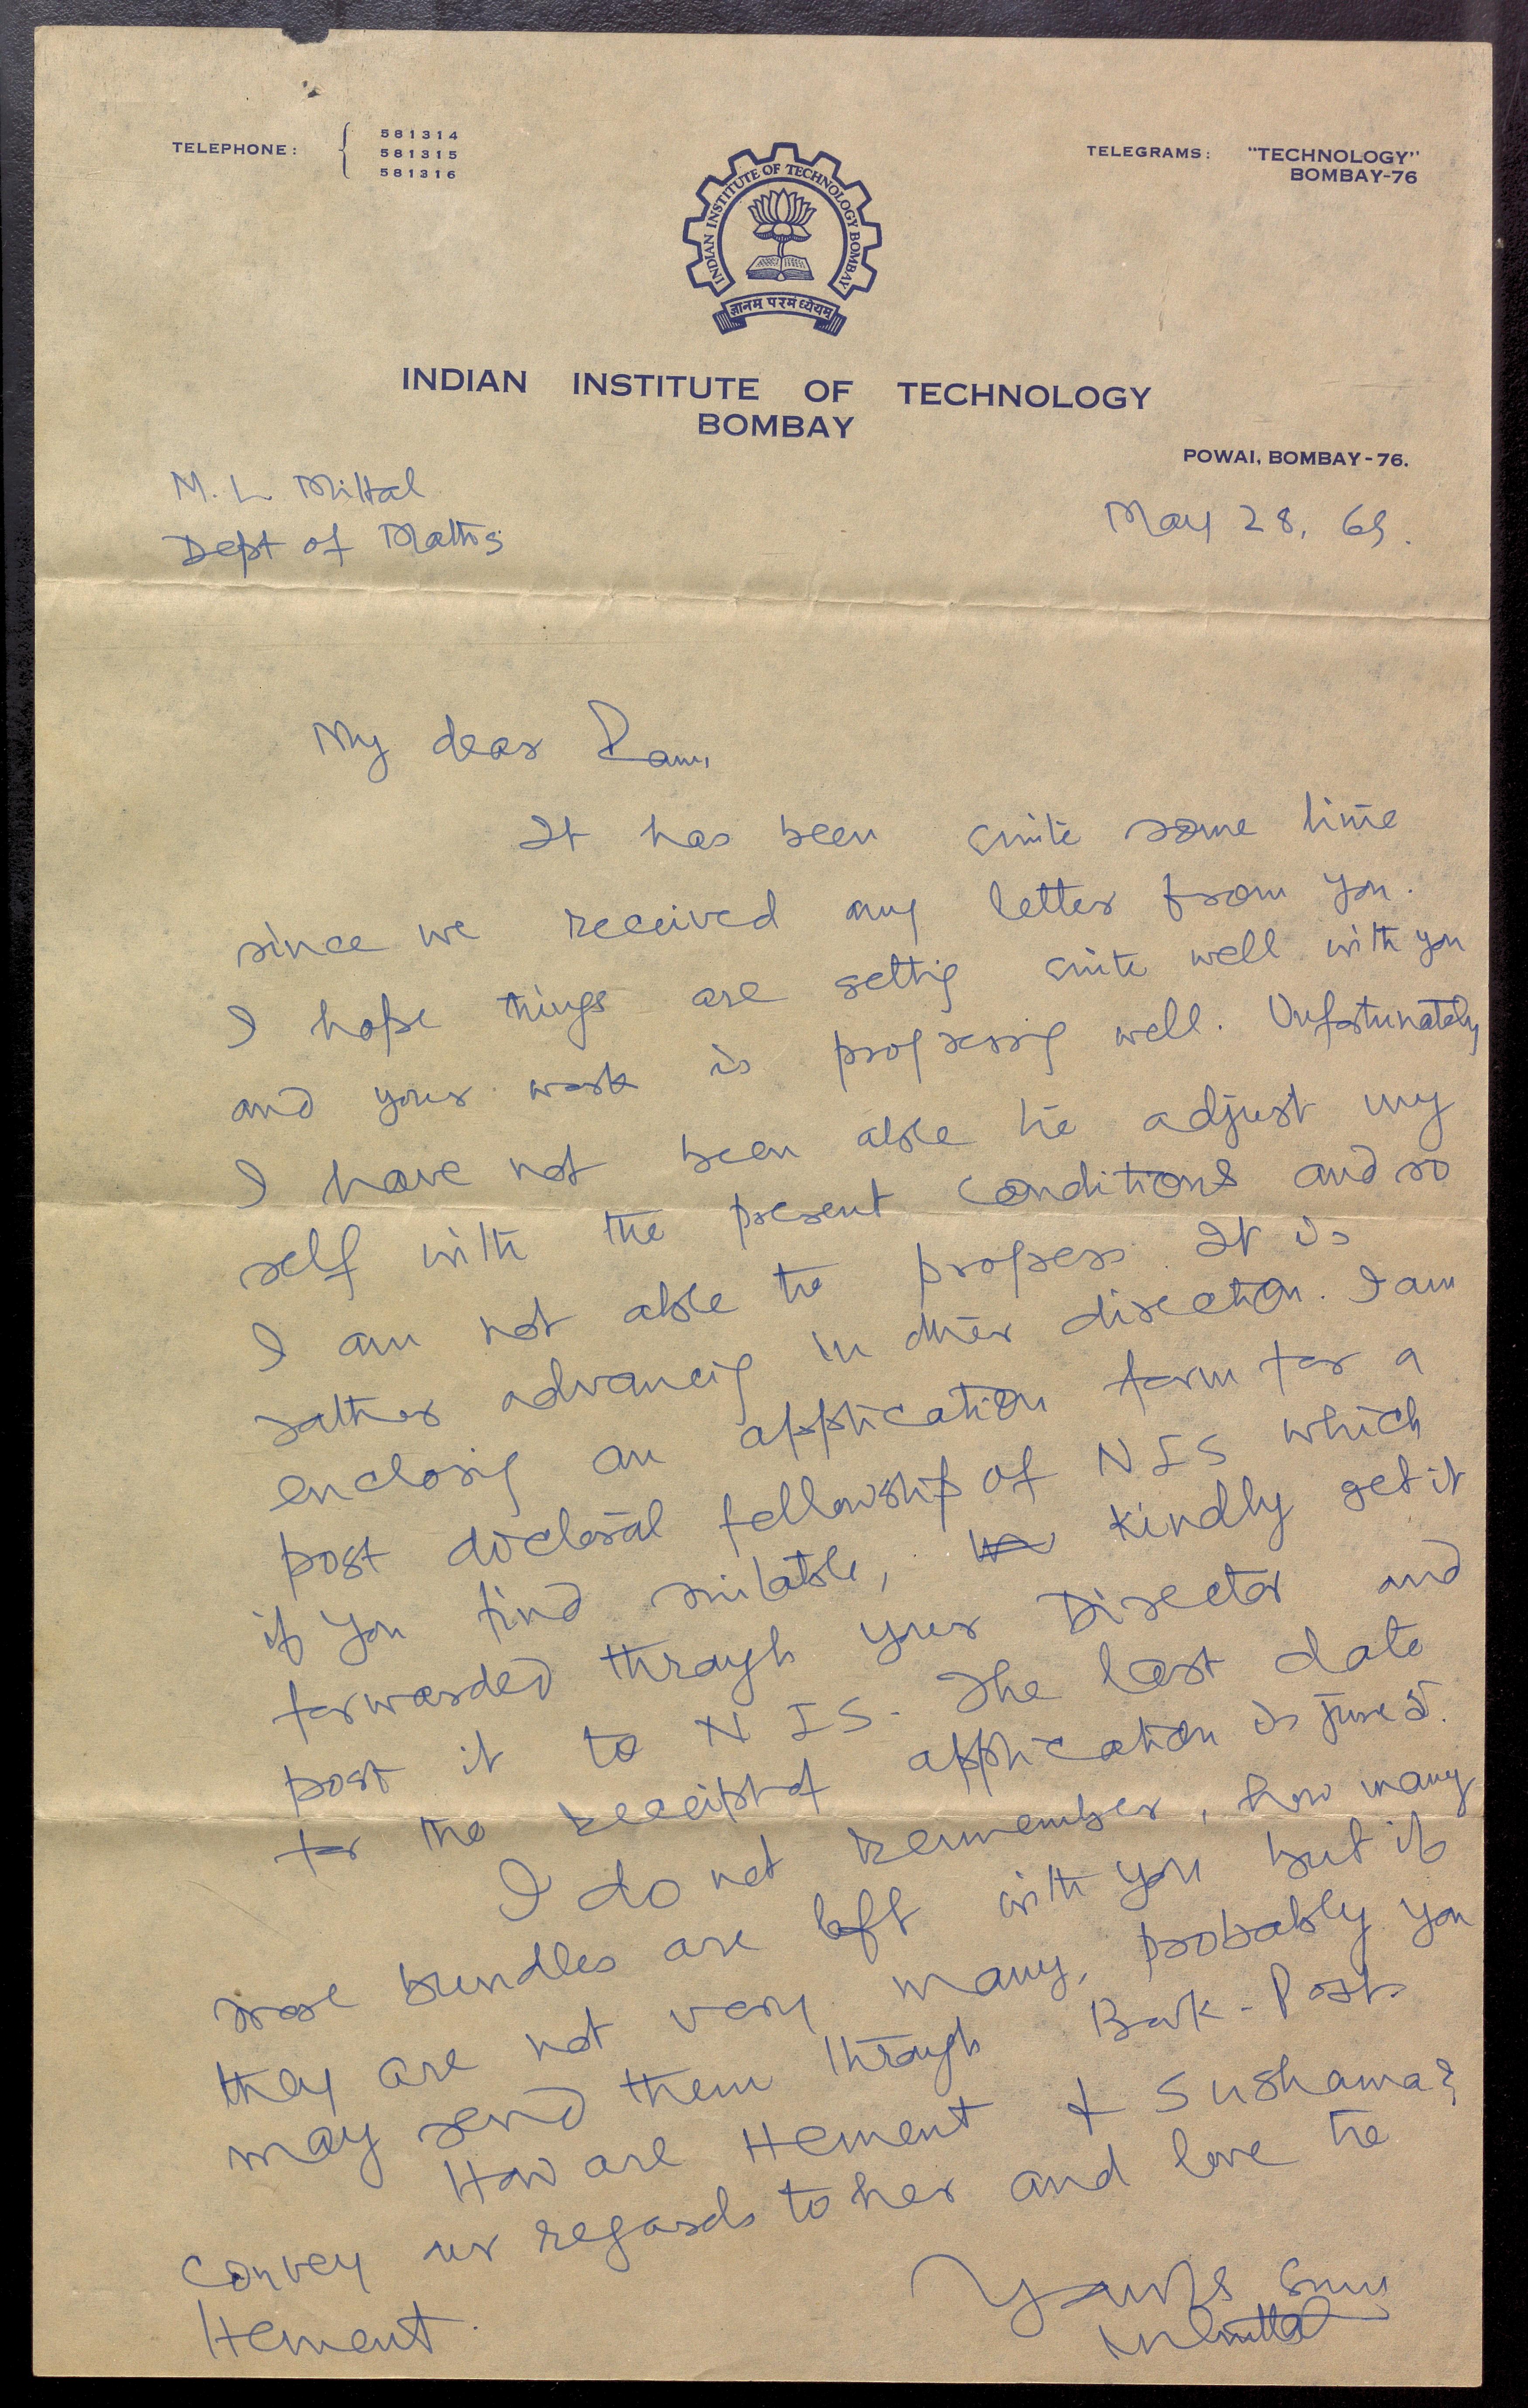 TELEPHONE: 581314
581315
581316
TELEGRAMS: "TECHNOLOGY"
BOMBAY-76
INDIAN INSTITUTE OF TECHNOLOGY BOMBAY
ज्ञानम् परमं ध्येयम्
INDIAN INSTITUTE OF TECHNOLOGY
BOMBAY
POWAI, BOMBAY-76.
M. L. Mittal
Dept of Maths
May 28, 69.
My dear Ram,
It has been quite some time
since we received any letter from you.
I hope things are settig quite well with you
and your work is progressig well. Unfortunately
I have not been able to adjust my
self with the present conditions and so
I am not able to progress. It is
rather advancig in other direction. I am
enclosig an application form for a
post doctoral fellowship of NIS which
if you find suitable, kindly get it
forwarded through your Director and
post it to NIS. The last date
for the receipt of application is June 5.
I do not remember, how many
more bundles are left with you but if
they are not very many, probably you
may send them through Book-Post.
How are Hement & Sushama?
Convey our regards to her and love to
Hement.
Yours
mlmittal